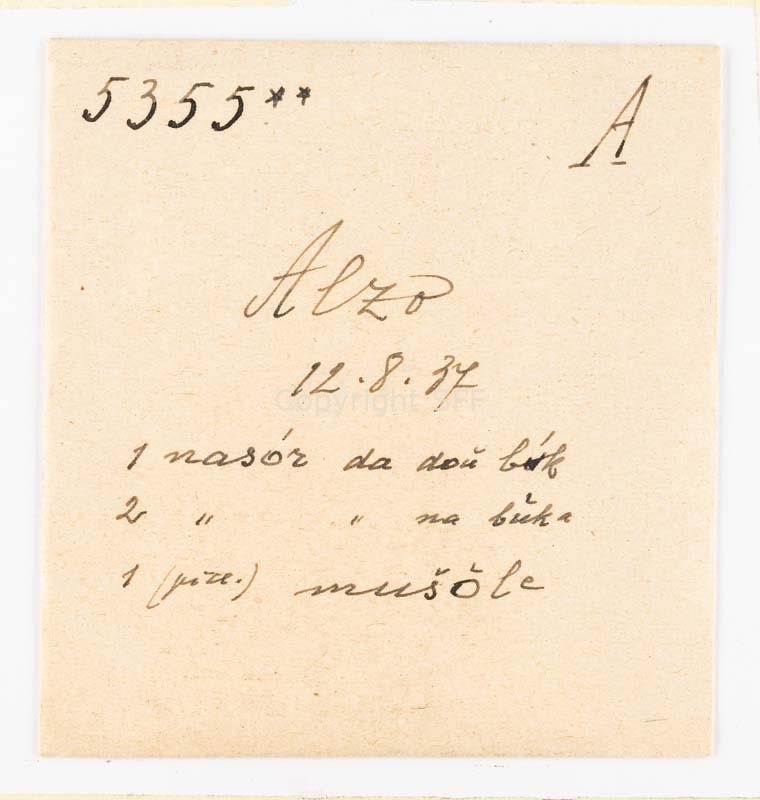 5355**
A
Alzo
12.8.37
Copyright SFF
1 nasór da doŭ bŭk
2 " " na bŭka
1 (picc.) mušŏle